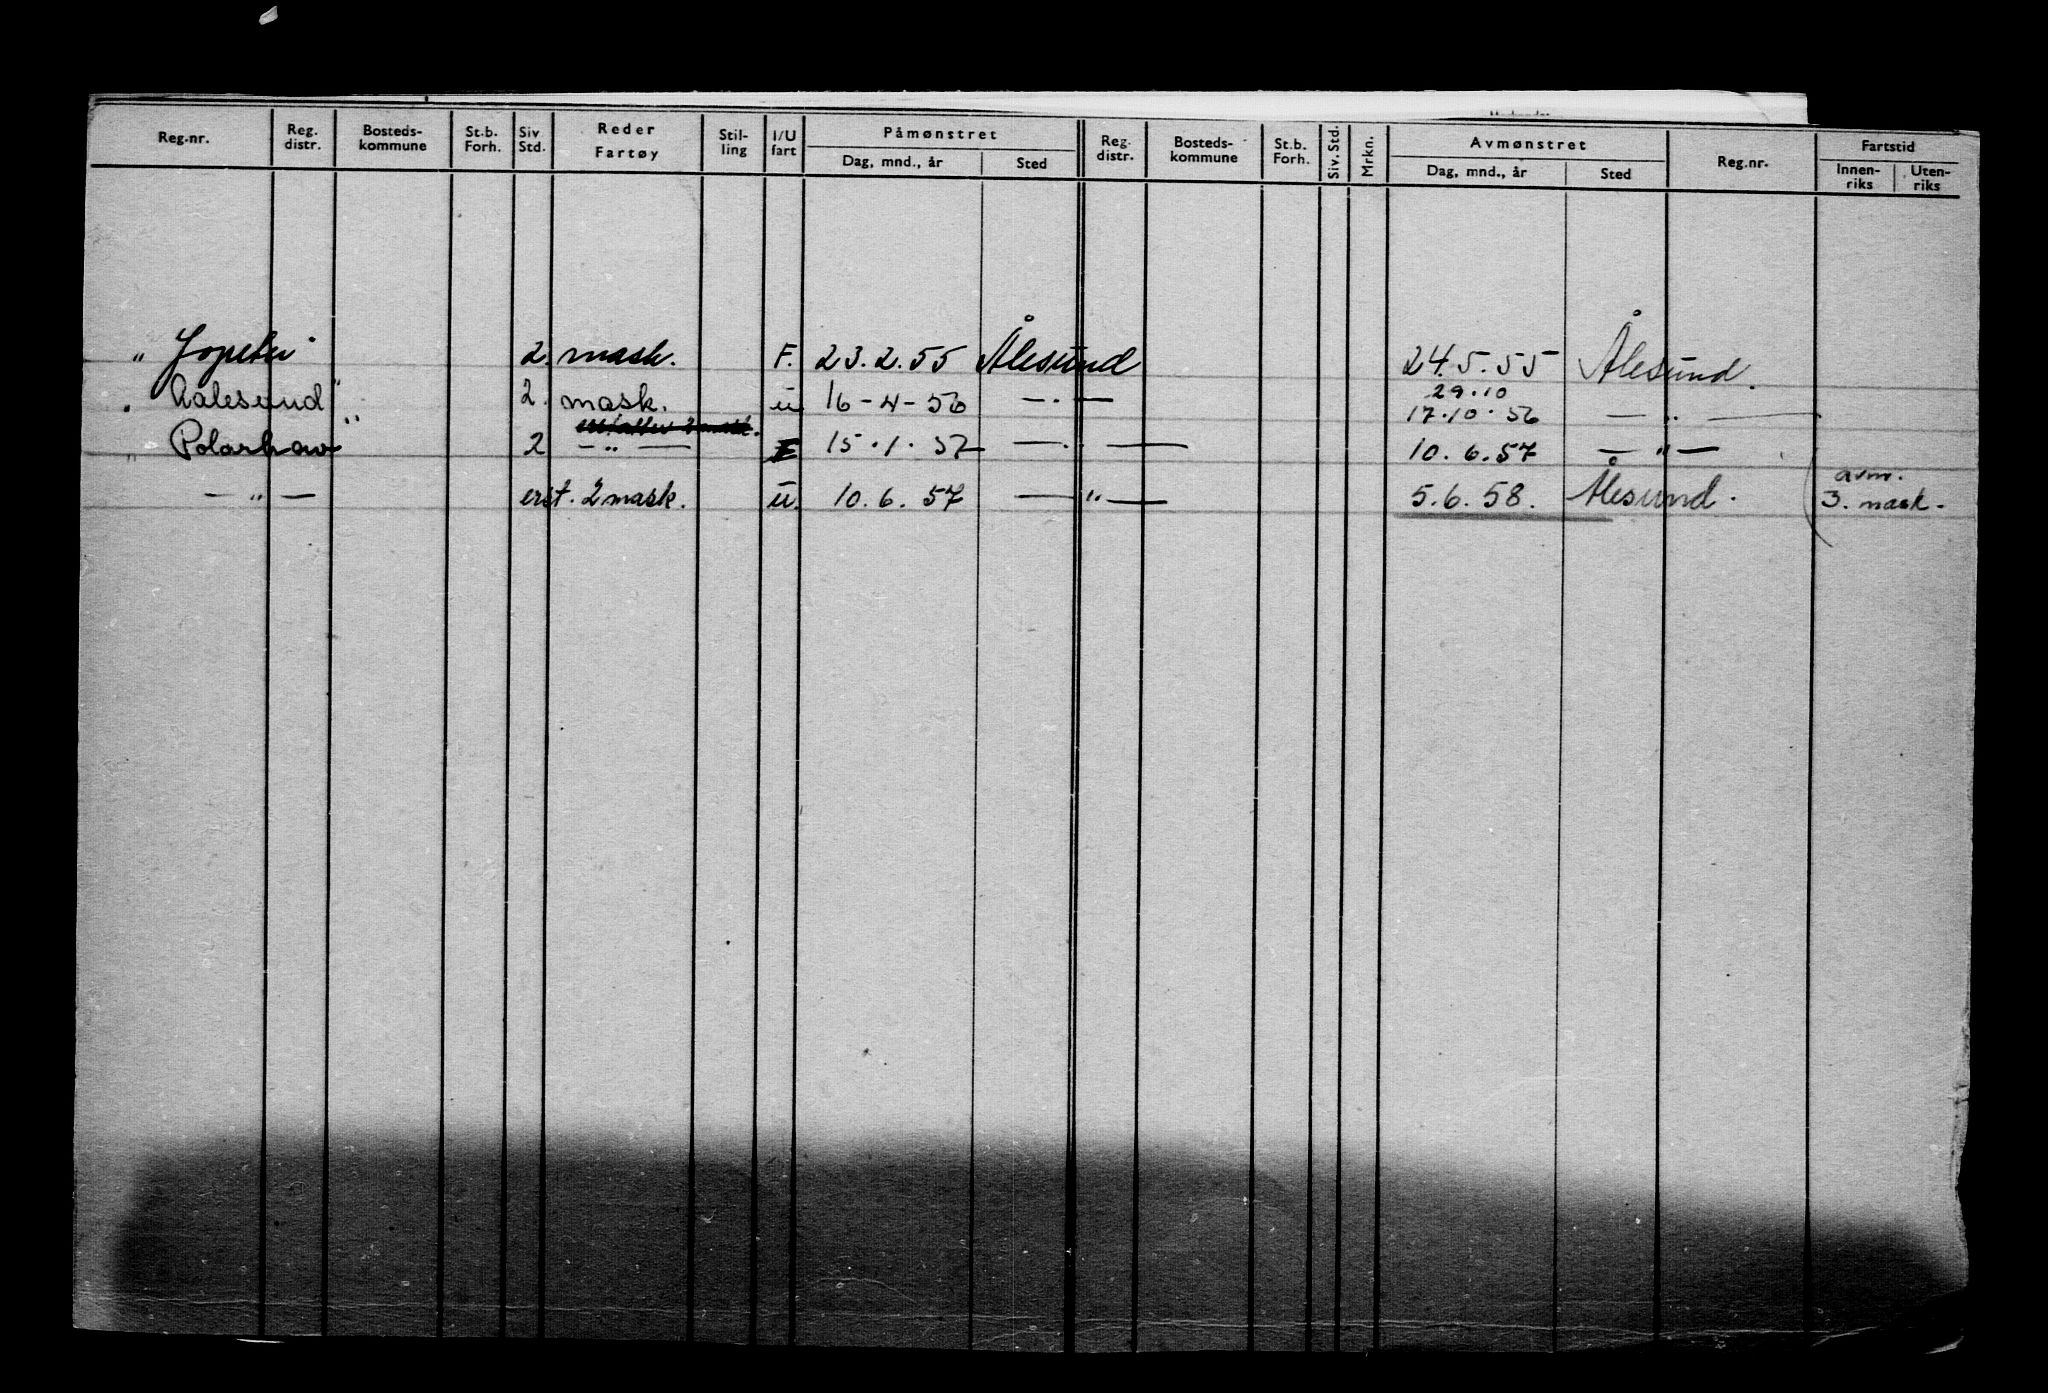 Reg.nr. Reg. distr. Bosteds- kommune St.b. Forh. Siv. Std. Reder Fartøy Stil- ling I/U fart Påmønstret Dag, mnd., år Sted Reg. distr. Bosteds- kommune St.b. Forh. Siv. Std. Mrkn. Avmønstret Dag, mnd., år Sted Reg.nr. Fartstid Innen- riks Uten- riks
" Jopeter" 2. mask. F. 23.2.55 Ålesund 24.5.55 Ålesund.
29.10
" Aalesund" 2. mask. u 16-4-56 — " — 17.10.56 — " —
" Polarhav" 2 — " — F 15.1.57 — " — 10.6.57 — " —
avm.
— " — erst. 2 mask. u. 10.6.57 — " — 5.6.58. Ålesund. ( 3. mask.